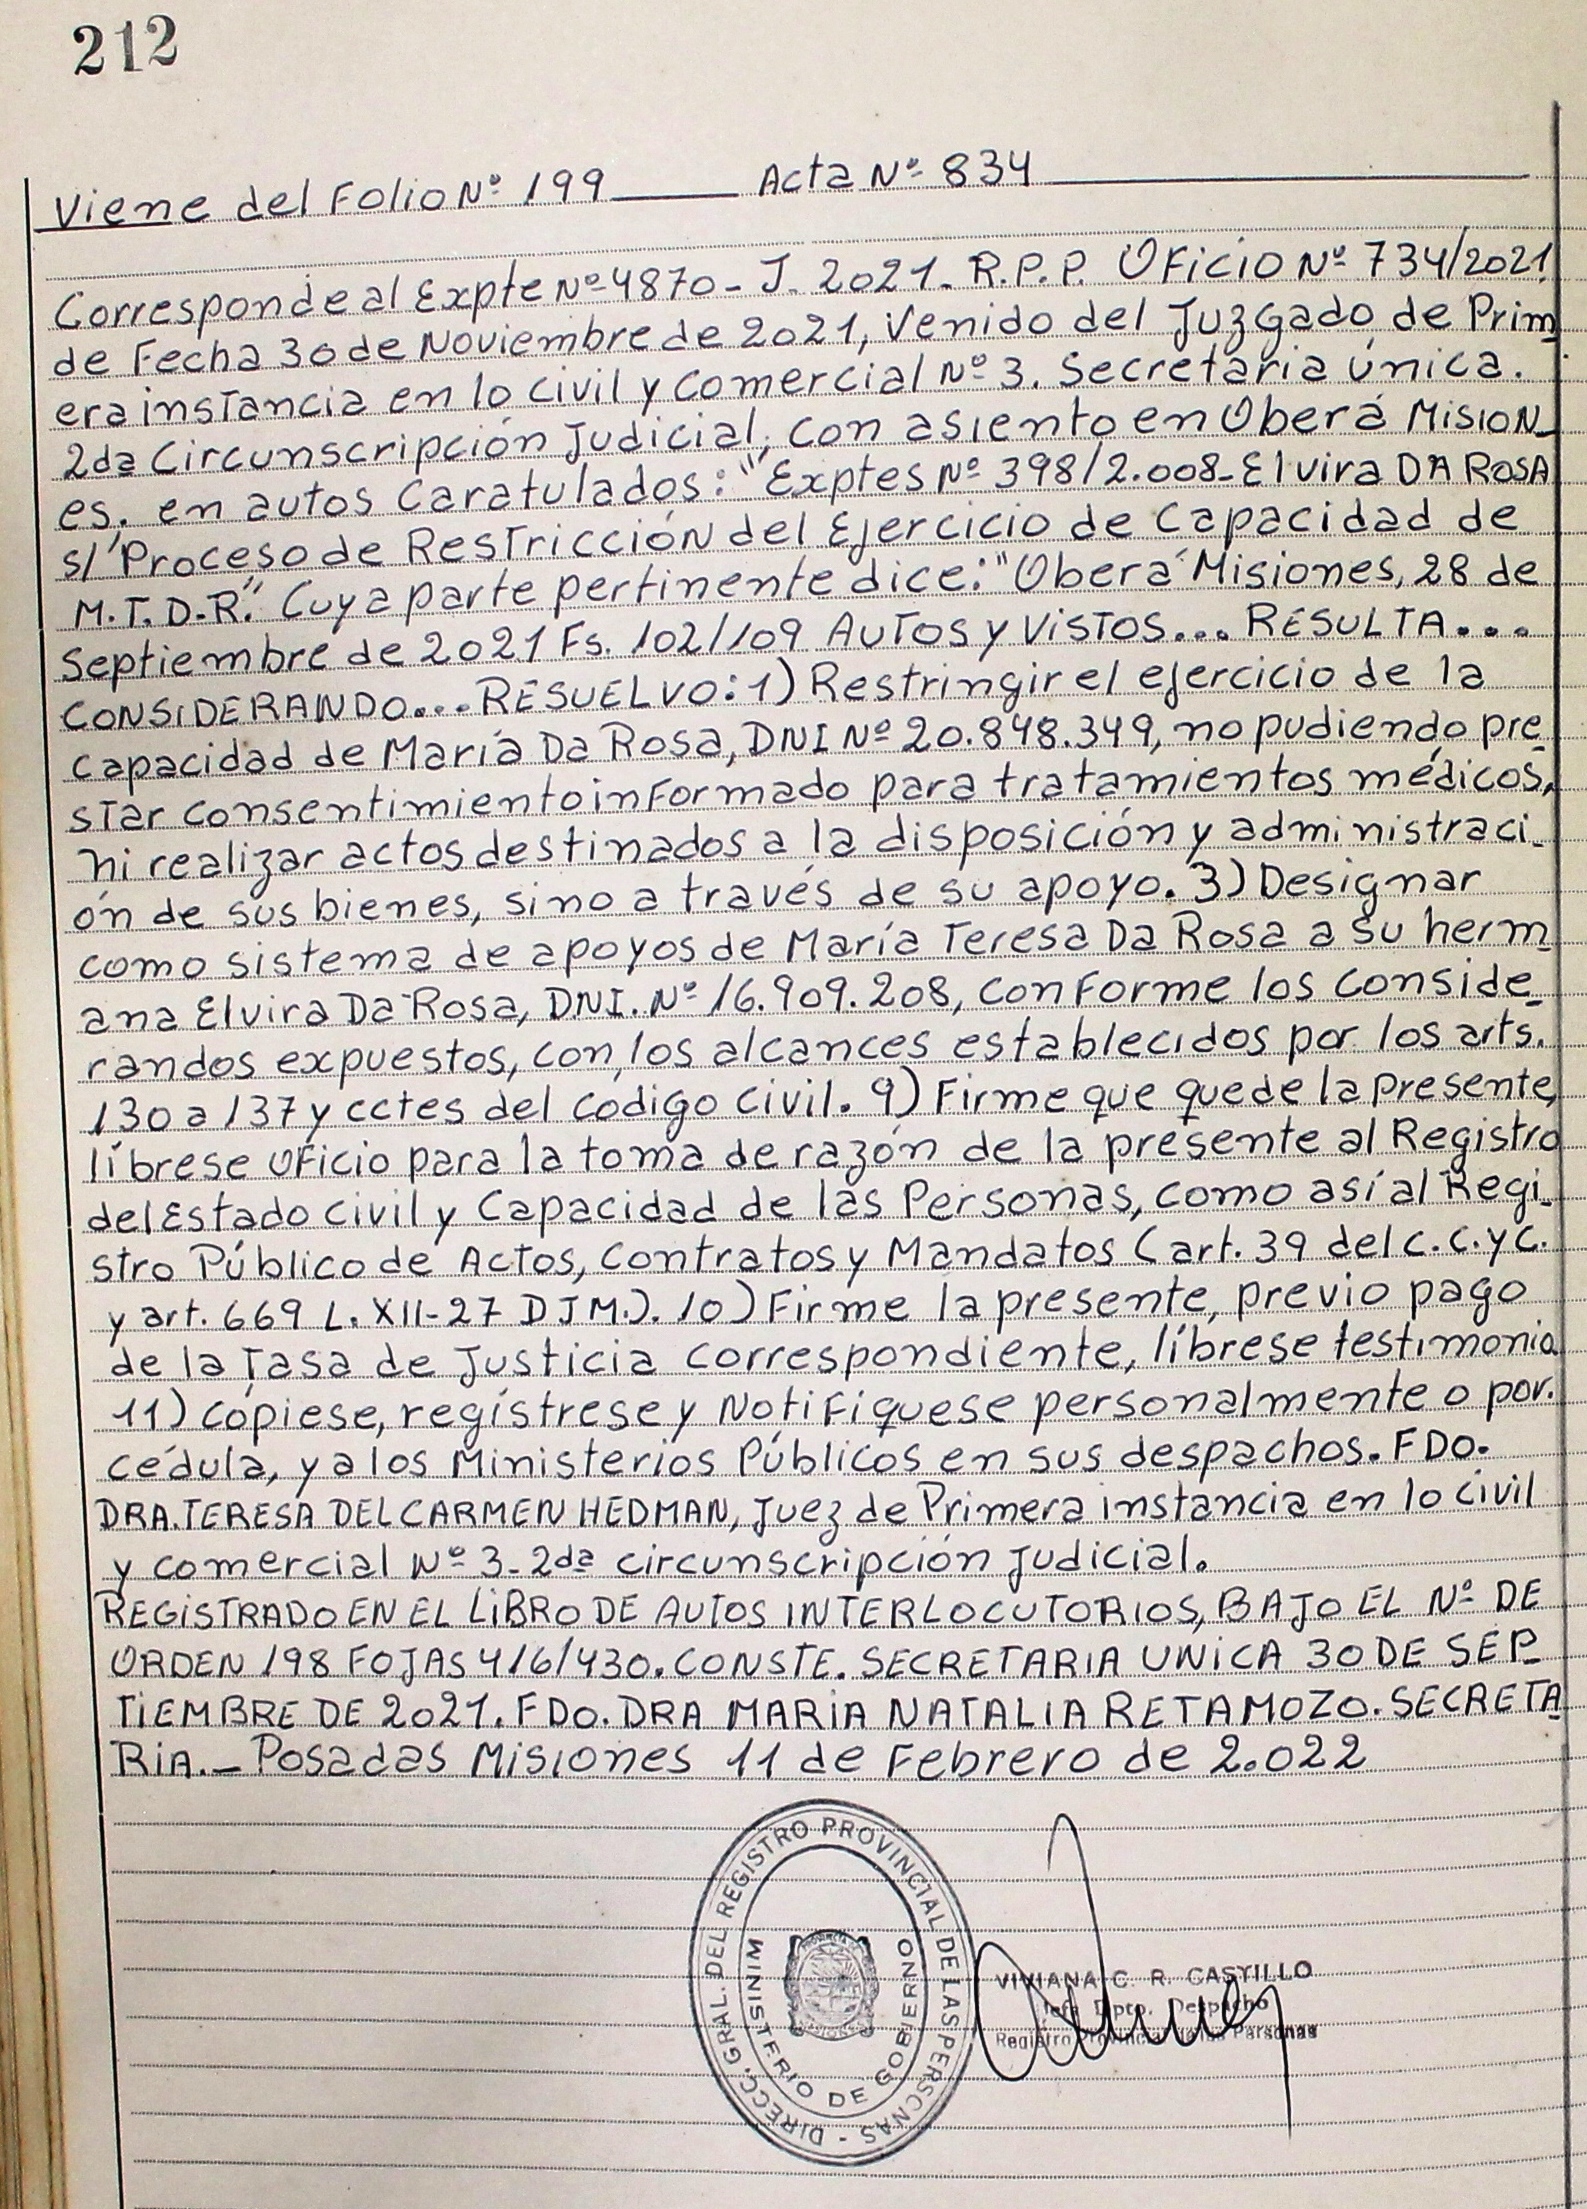 212
Viene del Folio Nº 199 Acta Nº 834
Corresponde al Expte Nº 4870-J-2021-R.P.P. Oficio Nº 734/2021
de Fecha 30 de Noviembre de 2021, Venido del Juzgado de Prim
era instancia en lo civil y Comercial Nº 3. Secretaria única.
2da Circunscripción Judicial, con asiento en Oberá MISION_
es. en autos Caratulados: "Exptes Nº 398/2.008-Elvira DA ROSA
s/ Proceso de Restricción del Ejercicio de Capacidad de
M.T.D.R." Cuya parte pertinente dice: "Oberá Misiones, 28 de
Septiembre de 2021 Fs. 102/109 AUTOS y VISTOS... RESULTA...
CONSIDERANDO... RESUELVO: 1) Restringir el ejercicio de la
capacidad de María Da Rosa, DNI Nº 20.848.349, no pudiendo pre_
star consentimiento informado para tratamientos médicos,
ni realizar actos destinados a la disposición y administraci_
ón de sus bienes, sino a través de su apoyo. 3) Designar
como sistema de apoyos de María Teresa Da Rosa a su herm_
ana Elvira Da Rosa, DNI. Nº 16.909.208, conforme los conside_
randos expuestos, con los alcances establecidos por los arts.
130 a 137 y cctes del codigo civil. 9) Firme que quede la presente,
líbrese oficio para la toma de razón de la presente al Registro
del Estado civil y Capacidad de las Personas, como así al Regi_
stro Público de Actos, contratos y Mandatos (art. 39 del c.c.yc.
y art. 669 L. XII-27 DJM.). 10) Firme la presente, previo pago
de la Tasa de Justicia correspondiente, líbrese testimonio
11) cópiese, regístrese y Notifíquese personalmente o por.
cédula, y a los Ministerios Públicos en sus despachos. FDO.
DRA. TERESA DEL CARMEN HEDMAN, Juez de Primera instancia en lo civil
y comercial Nº 3-2da circunscripción Judicial.
REGISTRADO EN EL LIBRO DE AUTOS INTERLOCUTORIOS, BAJO EL Nº DE
ORDEN 198 FOJAS 416/430. CONSTE. SECRETARIA UNICA 30 DE SEP_
TIEMBRE DE 2021. FDO. DRA MARIA NATALIA RETAMOZO. SECRETA
RIA.- Posadas Misiones 11 de Febrero de 2.022
DIRECC. GRAL. DEL REGISTRO PROVINCIAL DE LAS PERSONAS -
MINISTERIO DE GOBIERNO
VIVIANA C. R. CASTILLO
Jefe Dpto. Despacho
Registro Provincial de las Personas